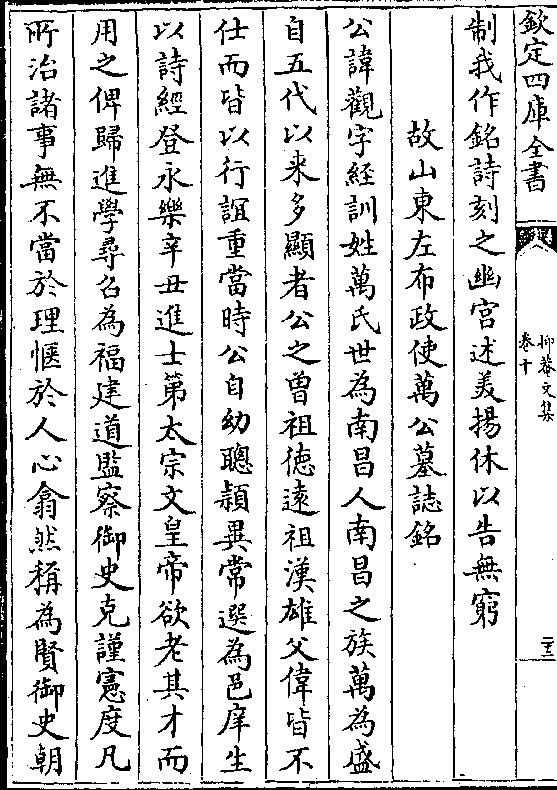 欽定四庫全書
抑菴文集
卷十
二三
制我作銘詩刻之幽宮述美揚休以告無窮
故山東左布政使萬公墓誌銘
公諱觀字經訓姓萬氏世為南昌人南昌之族萬為盛
自五代以来多顯者公之曾祖徳遠祖漢雄父偉皆不
仕而皆以行誼重當時公自幼聰頴異常選為邑庠生
以詩經登永樂辛丑進士第太宗文皇帝欲老其才而
用之俾歸進學尋召為福建道監察御史克謹憲度凡
所治諸事無不當於理愜於人心翕然稱為賢御史朝